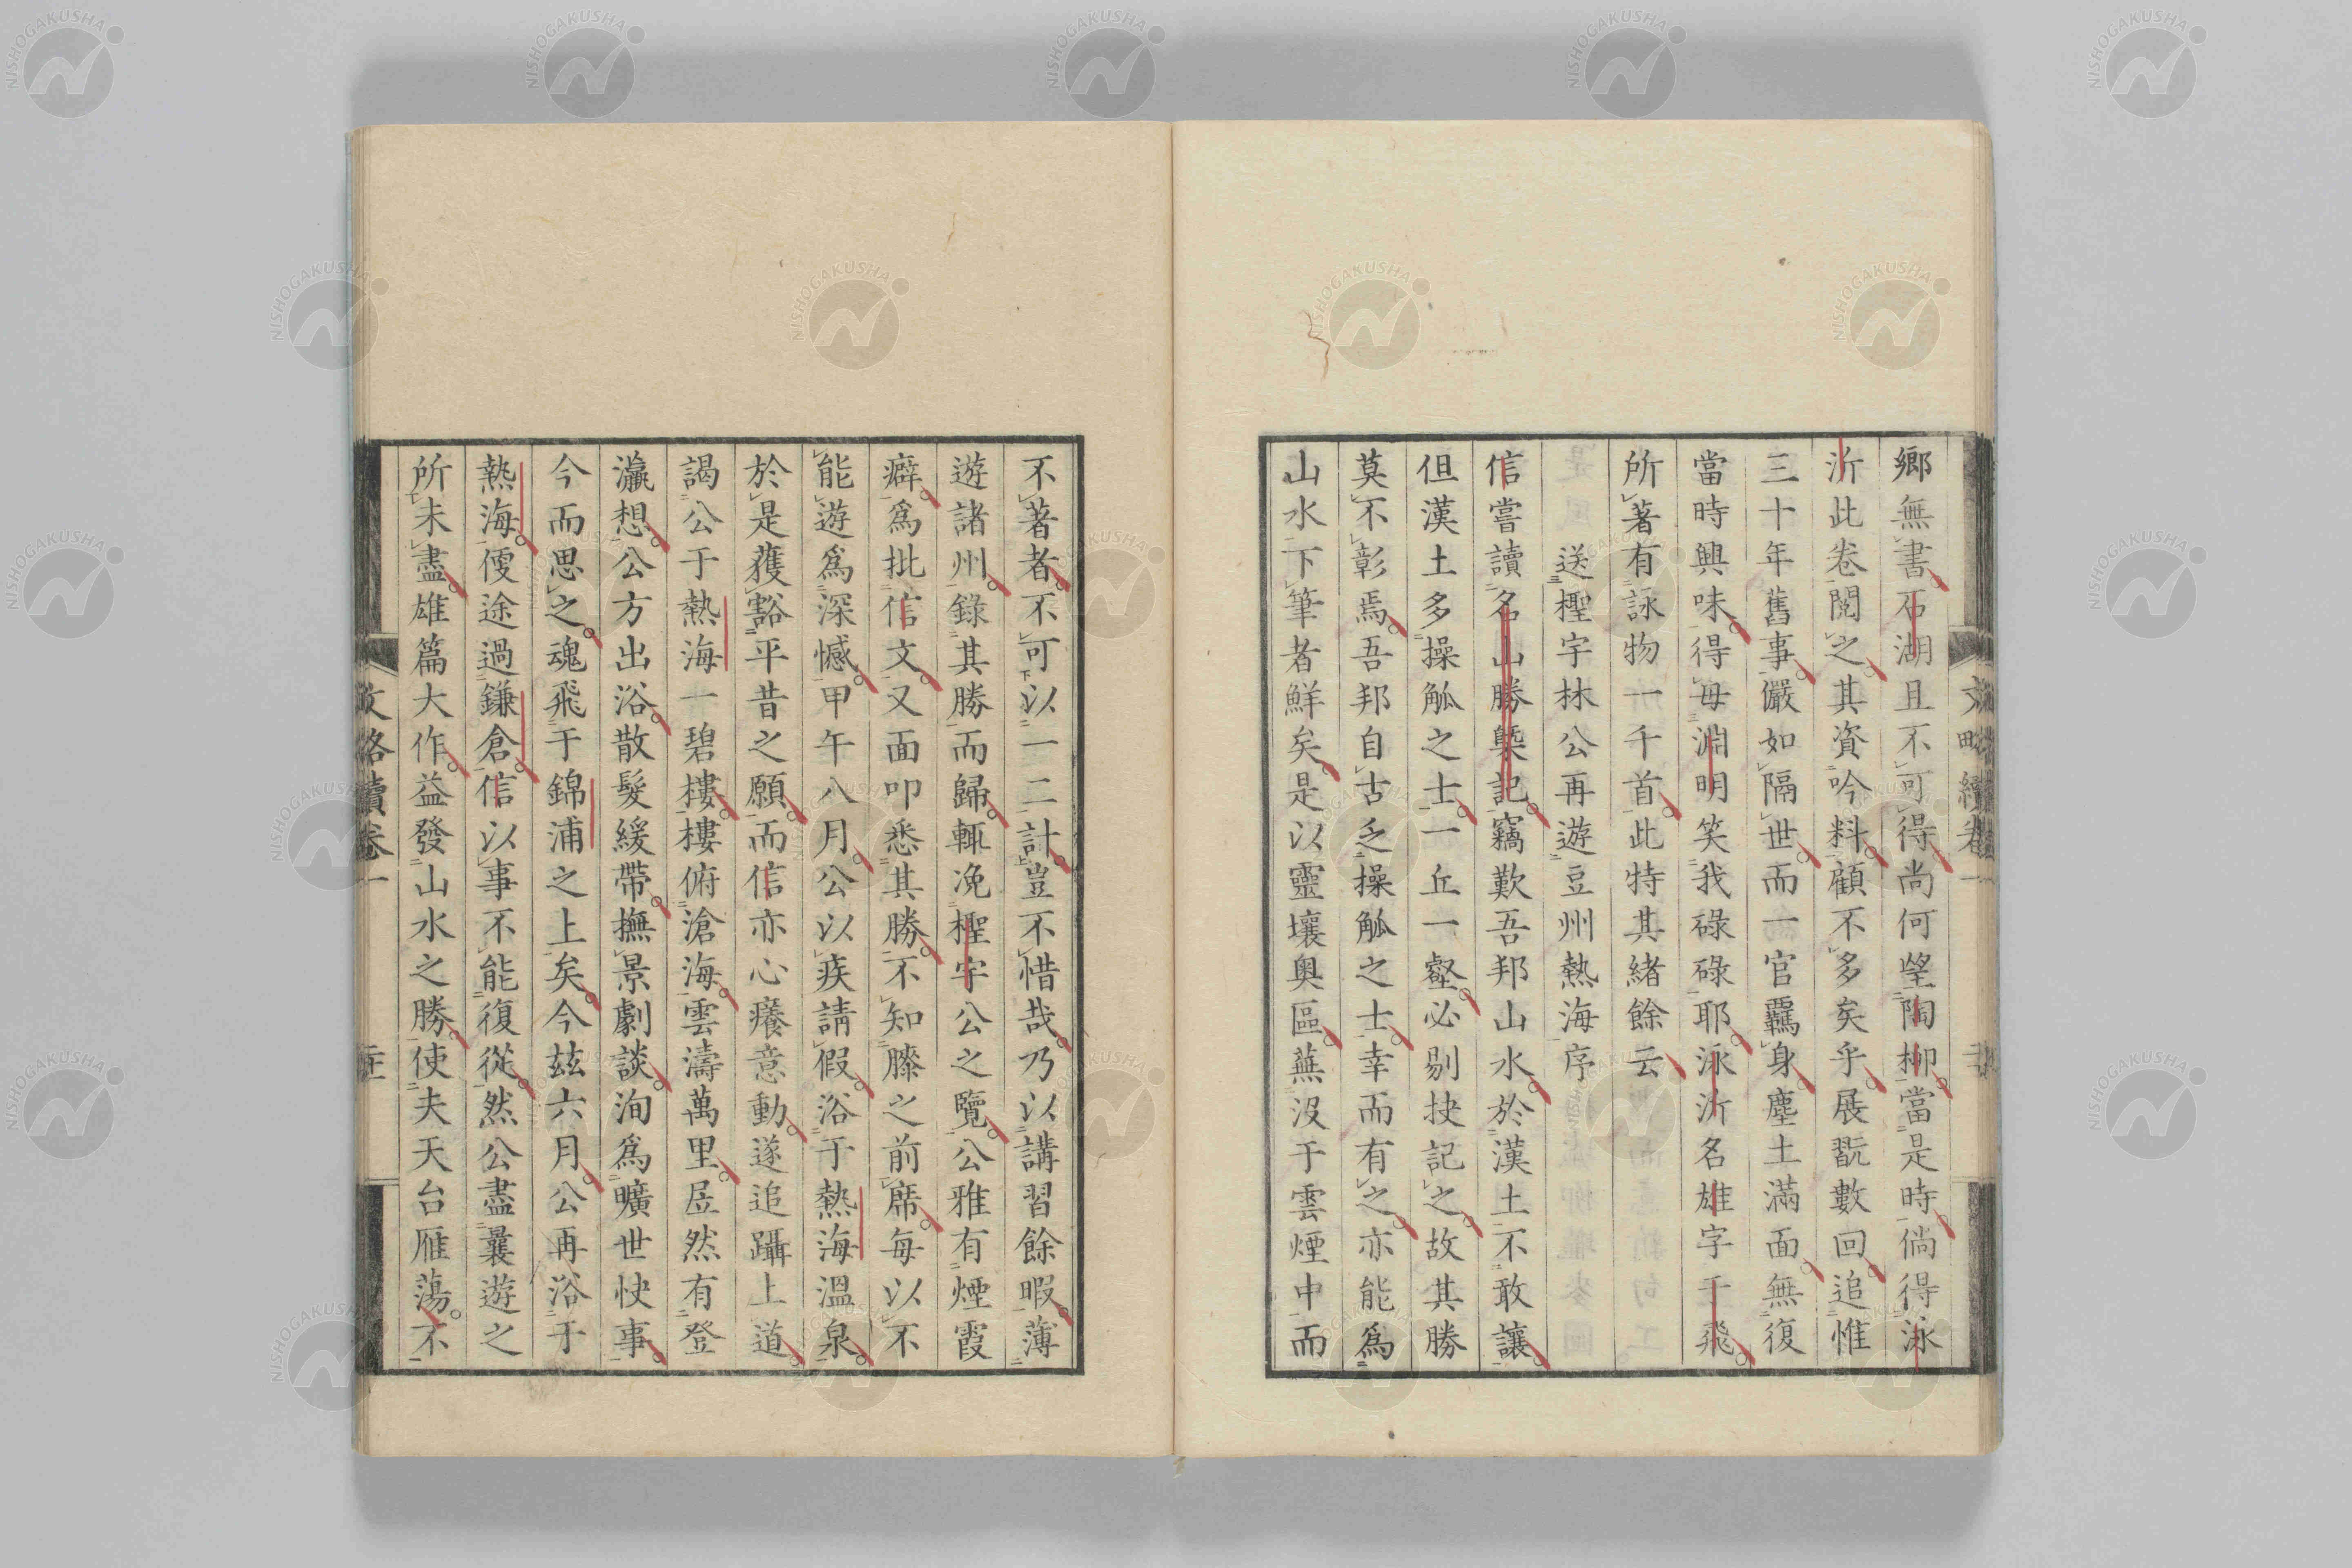 鄉無書石湖且不可得尚何望陶柳當是時倘得泳
沂此卷閱之其資吟料顧不多矣乎展翫數回追惟
三十年舊事儼如隔世而一官羈身塵土滿面無復
當時興味得毋淵明笑我碌碌耶泳沂名雄字千飛
所著有詠物一千首此特其緒餘云
送檉宇林公再遊豆州熱海序
信嘗讀名山勝槩記竊歎吾邦山水於漢土不敢讓
但漢土多操觚之士一丘一壑必剔抉記之故其勝
莫不彰焉吾邦自古乏操觚之士幸而有之亦能爲
山水下筆者鮮矣是以靈壤奧區蕪沒于雲煙中而
文畧續卷一
不著者不可以一二計豈不惜哉乃以講習餘暇薄
遊諸州錄其勝而歸輒浼檉宇公之覽公雅有煙霞
癖爲批信文又面叩悉其勝不知膝之前席每以不
能遊爲深憾甲午八月公以疾請假浴于熱海溫泉
於是獲豁平昔之願而信亦心癢意動遂追躡上道
謁公于熱海一碧樓樓俯滄海雲濤萬里居然有登
瀛想公方出浴散髮緩帶撫景劇談洵爲曠世快事
今而思之魂飛于錦浦之上矣今玆六月公再浴于
熱海便途過鎌倉信以事不能復從然公盡曩遊之
所未盡雄篇大作益發山水之勝使夫天台雁蕩不
文畧續卷一
NISHOGAKUSHA